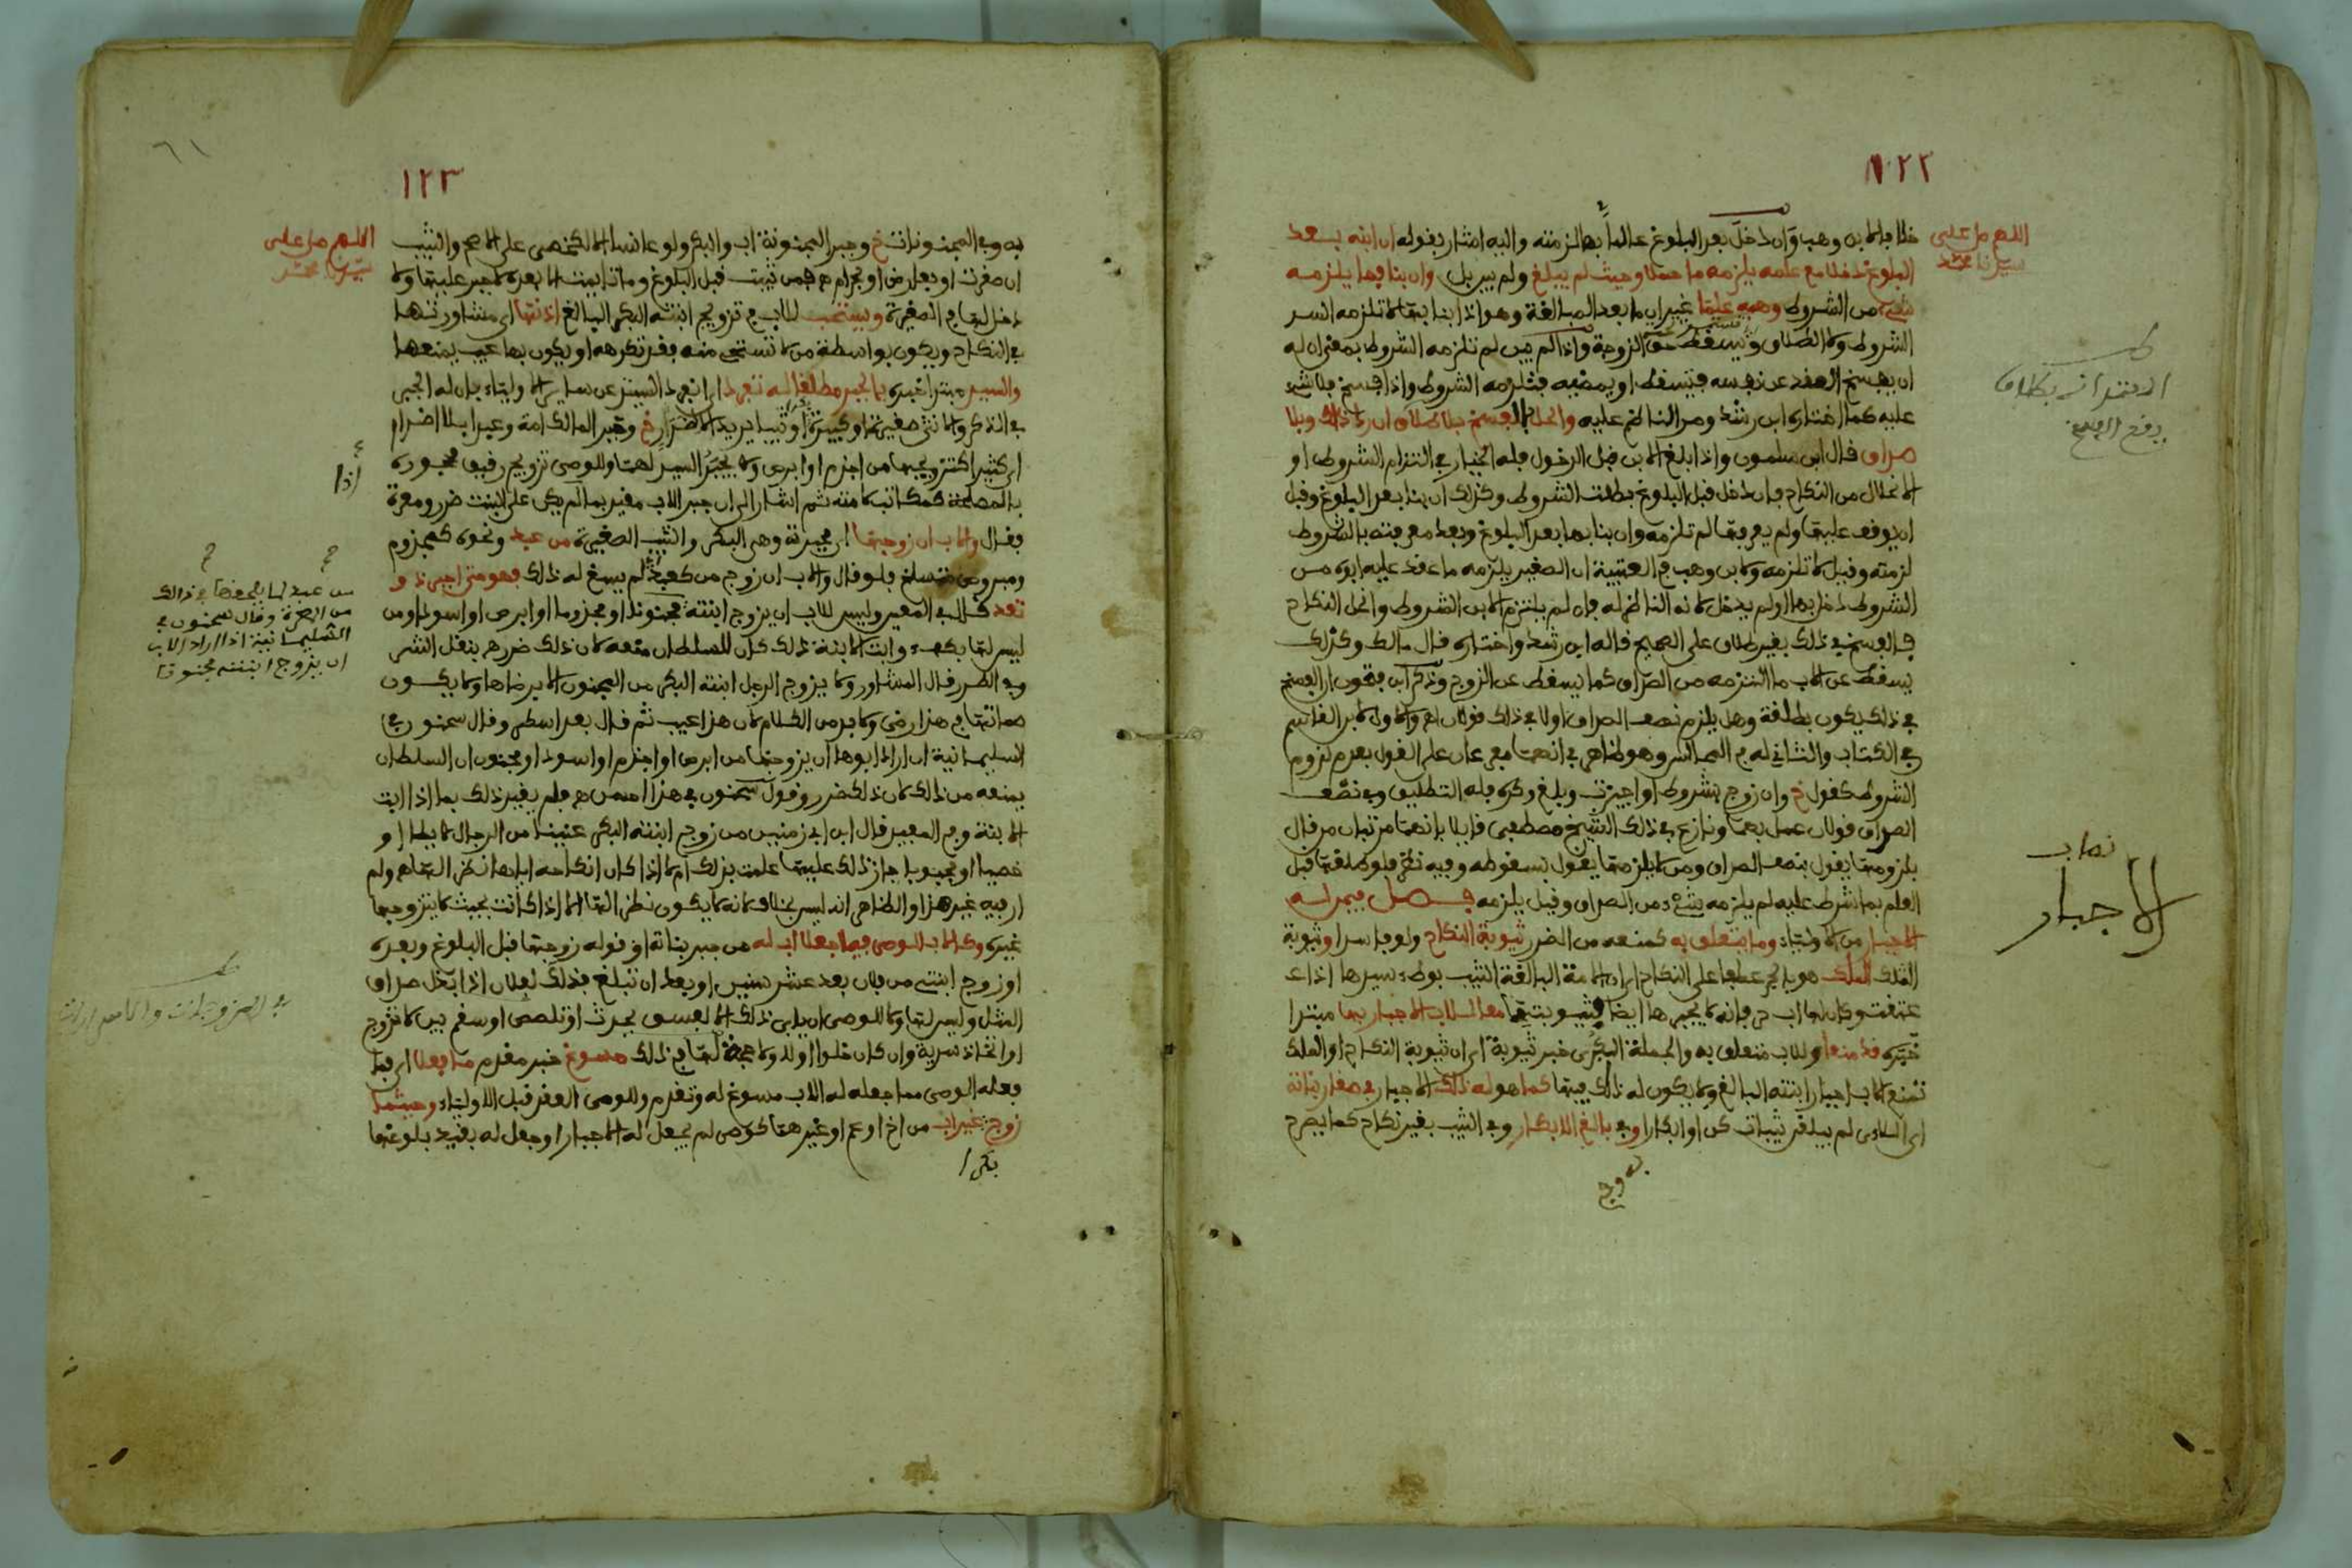 ١٢٢
اللهم صل على
سيدنا محمد
خلافا لابن وهب وان دخل بعد البلوغ عالما بها لزمته واليه اشار بقوله ان ابنه بعد
البلوغ دخلا مع علمه يلزمه ما حملا وحيث لم يبلغ ولم يدر بل وان بنا فما يلزمه
شيء من الشروط وهبه علما غير اي ما بعد المبالغة وهو اذا بنا بها لا تلزمه
الشروط ولا الطلاق ويسقط حق الزوجة واذا لم يبن لم تلزمه الشروط بمعنى ان له
ان يفسخ العقد عن نفسه فتسقط او يمضيه فتلزمه الشروط واذا فسخ فلا شيء
عليه كما اختاره ابن رشد ومر الناظم عليه والحل بالفسخ بلا طلاق ان رد ذاك وبلا
صداق قال ابن سلمون واذا بلغ الابن قبل الدخول فله الخيار في التزام الشروط او
الانحلال من النكاح فان دخل قبل البلوغ بطلت الشروط وكذلك ان بنا بعد البلوغ وقبل
ان يوقف عليها ولم يعرفها لم تلزمه وان بنا بها بعد البلوغ وبعد معرفته بالشروط
لزمته وقيل لا تلزمه ولابن وهب في العتبية ان الصغير يلزمه ما عقد عليه ابوه من
الشروط دخل بها او لم يدخل لانه الناظر له فان لم يلتزم الابن الشروط وانحل النكاح
فالفسخ في ذلك بغير طلاق على الصحيح قاله ابن رشد واختاره قال مالك وكذلك
يسقط عن الاب ما التزمه من الصداق كما يسقط عن الزوج وذكر ابن فتحون ان الفسخ
في ذلك يكون بطلقة وهل يلزم نصف الصداق او لا في ذلك قولان والاول لابن القاسم
في الكتاب والثاني له في المجالس وهو ظاهر في انهما مفرعان على القول بعدم لزوم
الشروط كقول خ وان زوج بشروط او اجيزت وبلغ وكره فله التطليق وفي نصف
الصداق قولان عمل بهما ونازع في ذلك الشيخ مصطفى قايلا بانهما مرتبان من قال
بلزومها يقول بنصف الصداق ومن لا يلزمها يقول بسقوطه وفيه نظر فلو طلقها قبل
العلم بما شرط عليه لم يلزمه شيء من الصداق وقيل يلزمه فصل فيمن له
الاجبار من الاولياء وما يتعلق به كمنعه من الضرر ثيوبة النكاح ولو فاسدا وثيوبة
الملك هو بالجر عطفا على النكاح اي ان الامة البالغة الثيب بوطء سيدها اذا
عتقت وكان لها اب فانه لا يجبرها ايضا فثيوبتها معا للاب الاجبار بها مبتدا
خبره قد منعا وللاب متعلق به والجملة الكبرى خبر ثيوبة اي ان ثيوبة النكاح او الملك
تمنع الاب اجبار ابنته البالغ ولا يكون له ذلك فيها كما هو له ذلك الاجبار في صغار بناته
اي اللاءي لم يبلغن ثيبات كن او ابكارا وفي بالغ الابكار وفي الثيب بغير نكاح كما يصرح
به وفي
الاجبار
١٢٣
٦١
اللهم صل على
سيدنا محمد
به وفي المجنونات خ وجبر المجنونة اب والبكر ولو عانسا الا لكخصي على الاصح والثيب
ان صغرت او بعارض او بحرام
دخل لها في الصغيرة ويستحب للاب في تزويج ابنته البكر البالغ اذنها اي مشاورتها
في النكاح ويكون بواسطة من لا تستحي منه فقد تكرهه او يكون بها عيب يمنعها
والسيد مبتدا خبره بالجبر مطلقا له تفرد اي انفرد السيد عن ساير الاولياء بان له الجبر
في الذكر والانثى صغيرة او كبيرة بكرا او ثيبا لا يريد الاضرار خ وجبر المالك امة وعبدا بلا اضرار
اي كثيرا كتزويجها من اجذم او ابرص ولا يجبر السيد لهما وللوصي تزويج رقيق محجوره
بالمصلحة كمكاتب لا منه ثم اشار الى ان جبر الاب مقيد بما لم يكن على البنت ضرر ومعرة
فقال والاب ان زوجها اي مجبرته وهي البكر والثيب الصغيرة من عبد ونحوه كمجذوم
ومبروص فلو قال والاب ان زوج من كعبد لم يسغ له ذلك فهو متى اجبر ذو
تعد قال في المفيد وليس للاب ان يزوج ابنته مجنونا او مجذوما او ابرص او اسود او من
ليس لها بكفء وابت الابنة ذلك كان للسلطان منعه لان ذلك ضرر
وفي الطرر قال المشاور ولا يزوج الرجل ابنته البكر من المجنون الا برضاها ولا يكون
صماتها في هذا رضى ولا بد من الكلام لان هذا عيب ثم قال بعد اسطر وقال سحنون في
السليمانية ان اراد ابوها ان يزوجها من ابرص او اجذم او اسود او مجنون ان السلطان
يمنعه من ذلك لان ذلك ضرر وقول سحنون في هذا احسن فلم يقيد ذلك بما اذا ابت
الابنة وفي المفيد قال ابن ابي زمنين من زوج ابنته البكر عنينا من الرجال لا يطا او
خصيا او مجبوبا جاز ذلك عليها علمت بذلك ام لا اذا كان انكاحه اياها نظرا لها ولم
ار فيه غير هذا والظاهر انه ليس بخلاف لانه لا يكون نظرا لها الا اذا كانت بحيث لا يتزوجها
غيره وكالاب الوصي فيما جعلا اب له من جبر بناته او قوله زوجها قبل البلوغ وبعده
او زوج ابنتي من فلان بعد عشر سنين او بعد ان تبلغ فذلك لفلان اذا بذل صداق
المثل وليس لها ولا للوصي ان يابى ذلك الا لفسق بحدث او تلصص او سفه
او اتخاذ سرية وان كان خلوا اولا ولا حجة لها في ذلك مسوغ خبر مقدم ما فعلا اي فما
فعله الوصي مما جعله له الاب مسوغ له وتقدم وللوصي العقد قبل الاولياء وحيثما
زوج غير اب من اخ او عم او غيرهما كوصي لم يجعل له الاجبار او جعل له بقيد بلوغها
بكرا
اذا
وقال سحنون في
السليمانية اذا اراد الاب
ان يزوج ابنته مجنونا